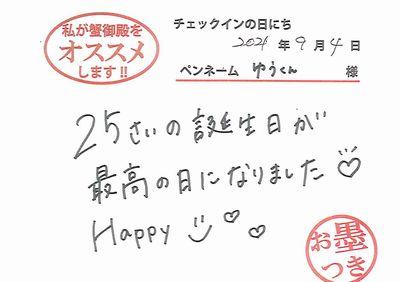 私が蟹御殿を
オススメ
します!!
チェックインの日にち
2021 年 9 月 4 日
ペンネーム ゆうくん 様
25さいの誕生日が
最高の日になりました♡
Happy
お墨
つき